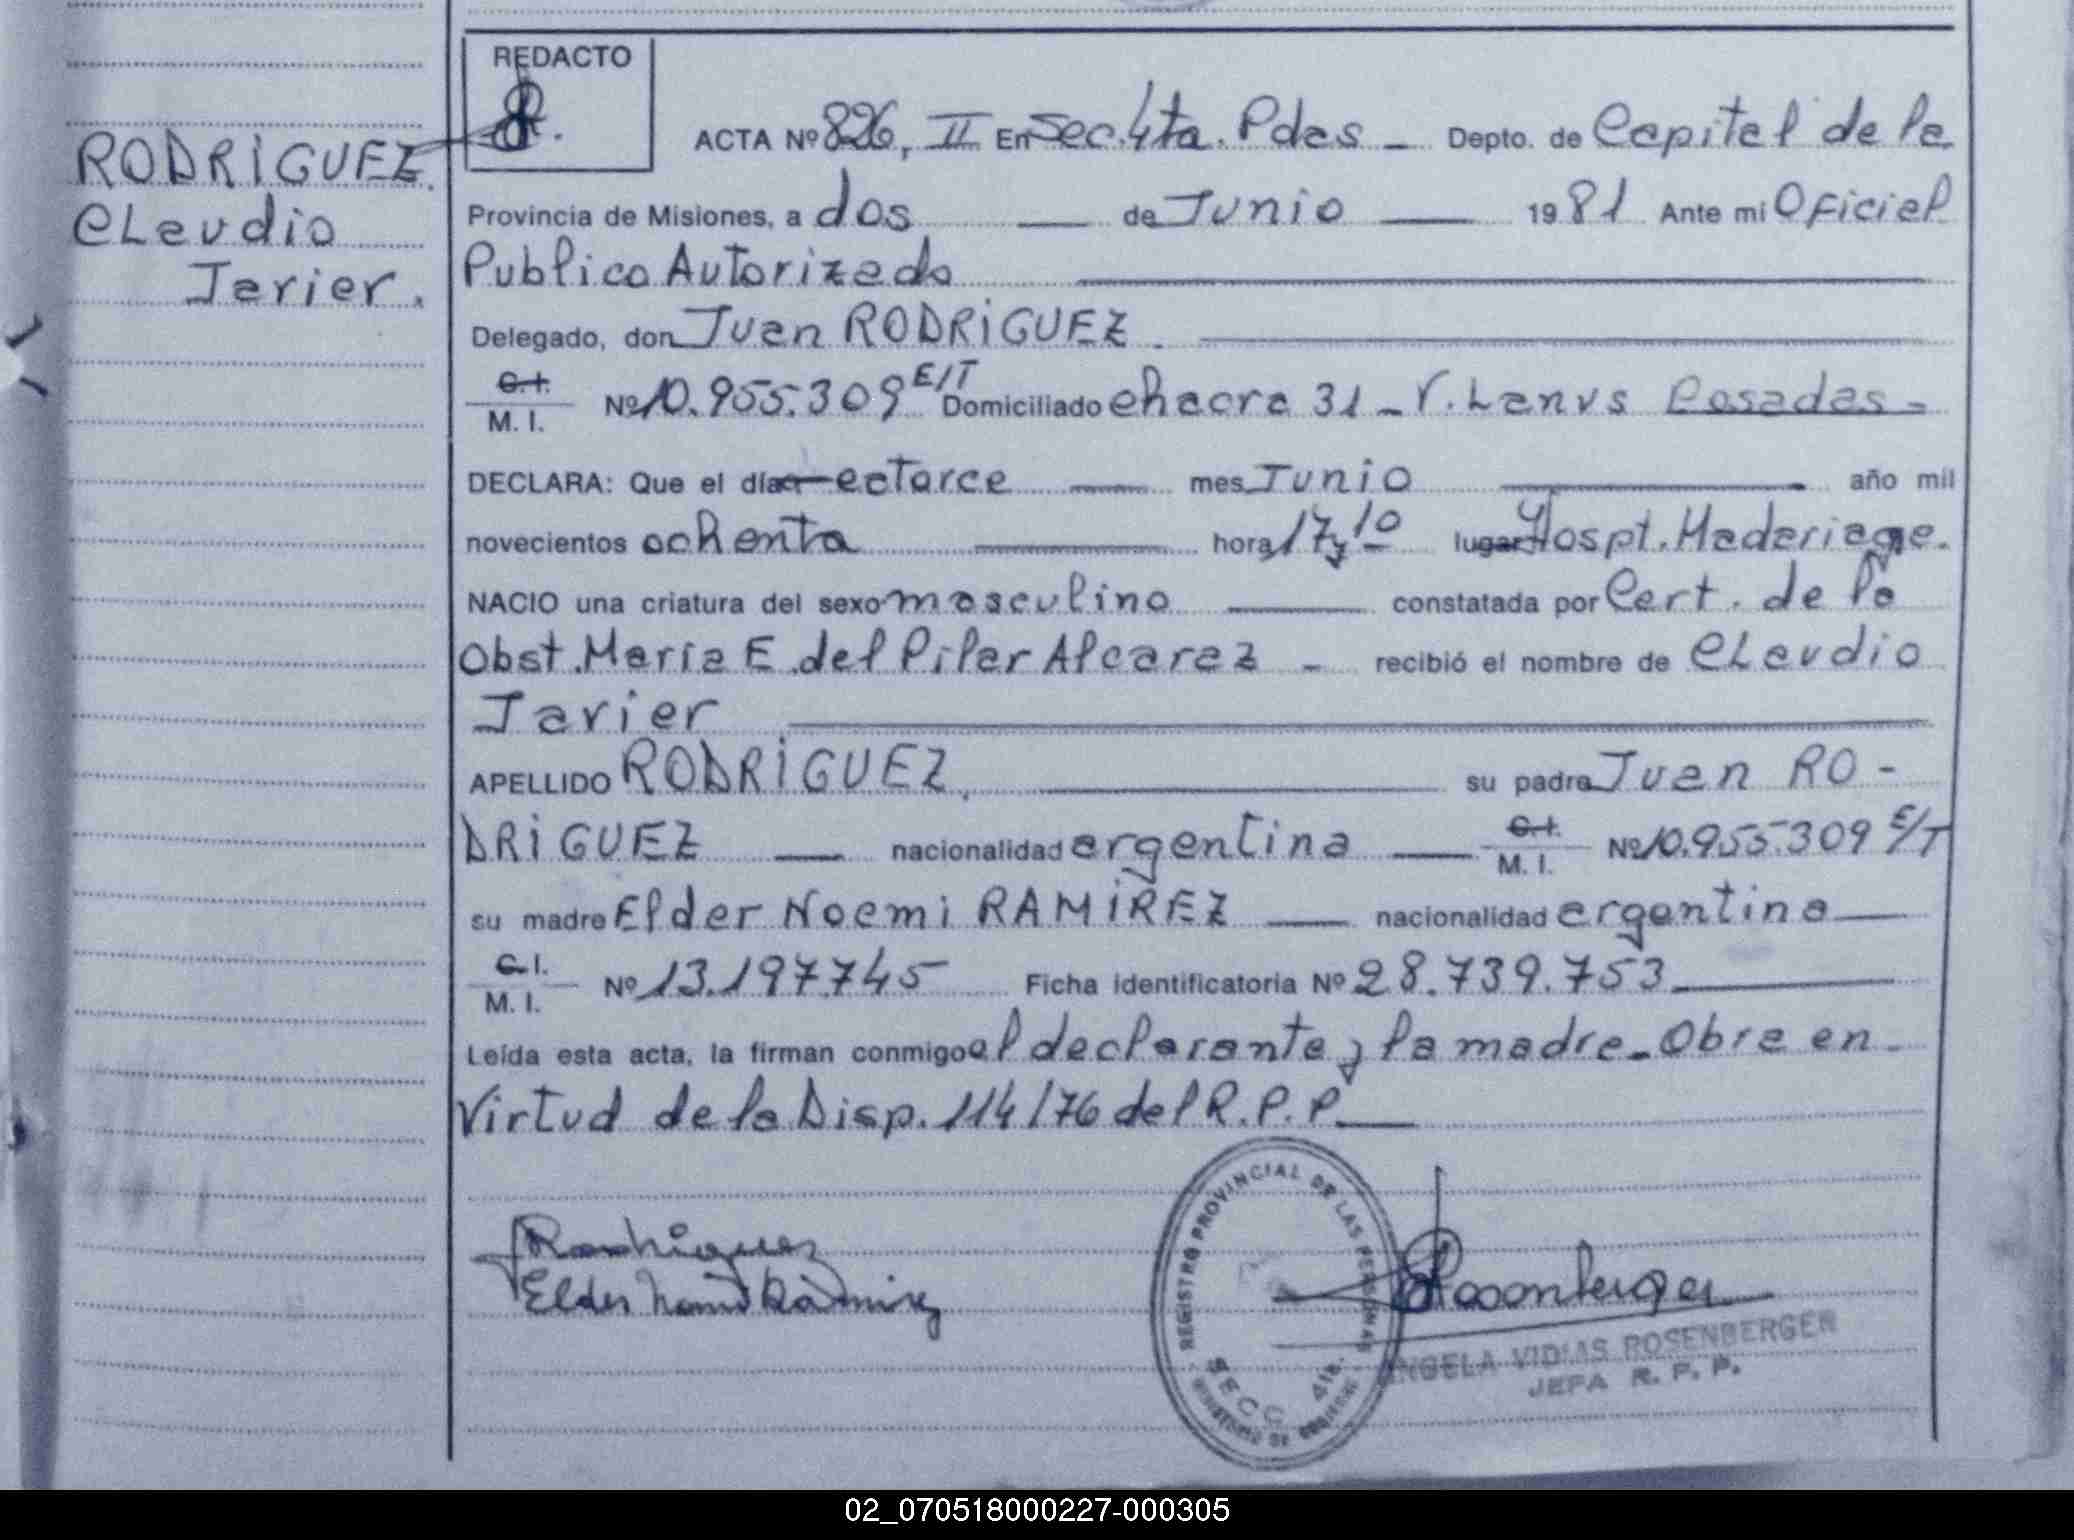 REDACTO
RODRIGUEZ.
CLaudio
Javier.
ACTA Nº 826, II En Sec. 4ta. Pdas - Depto. de Capital de la
Provincia de Misiones, a dos de Junio 1981 Ante mi Oficial
Publico Autorizado
Delegado, don Juan RODRIGUEZ.
C.I.
M. I. Nº 10.955.309 E/T Domiciliado Chacra 31 - V. Lanus Posadas -
DECLARA: Que el día catorce mes Junio año mil
novecientos ochenta hora 17 y 10 lugar Hospt. Madariaga.
NACIO una criatura del sexo masculino constatada por Cert. de la
Obst. María E. del Pilar Alcaraz - recibió el nombre de CLaudio
Javier
APELLIDO RODRIGUEZ, su padre Juan RO-
DRIGUEZ nacionalidad argentina C.I. M. I. Nº 10.955.309 E/T
su madre Elder Noemi RAMIREZ nacionalidad argentina
C.I.
M. I. Nº 13.197.745 Ficha identificatoria Nº 28.739.753
Leída esta acta, la firman conmigo el declarante y la madre. Obra en
Virtud de la Disp. 114/76 del R.P.P.
Rodriguez
Elder Noemi Ramirez
Rosenberger
REGISTRO PROVINCIAL DE LAS PERSONAS
SECC. 4ta.
MINISTERIO DE GOBIERNO
ANGELA VIDIAS ROSENBERGER
JEFA R. P. P.
02_070518000227-000305